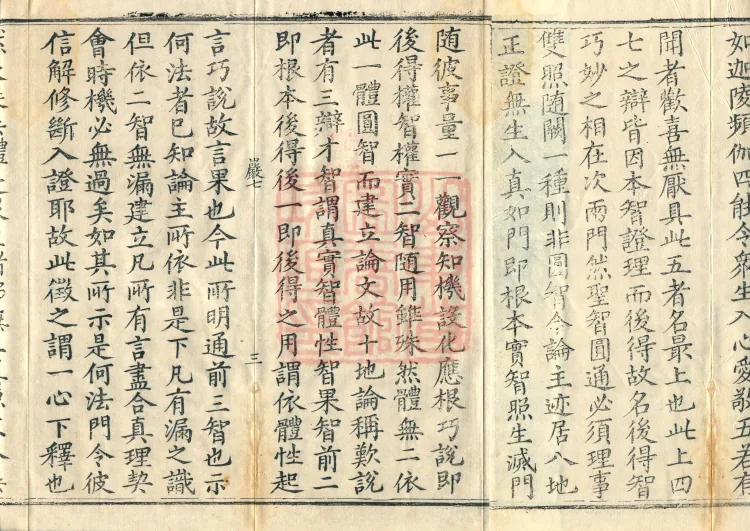 如迦陵頻伽四能令衆生入心愛敬五若有
聞者歡喜無厭具此五者名最上也此上四
七之辯皆因本智證理而後得故名後得智
巧妙之相在次兩門然聖智圓通必須理事
雙照随闕一種則非圓智今論主迹居八地
正證無生入真如門即根本實智照生滅門
随彼事量一一觀察知機設化應根巧說即
後得權智權實二智随用雖殊然體無二依
此一體圓智而建立論文故十地論稱歎說
者有三辯才智謂真實智體性智果智前二
即根本後得後一即後得之用謂依體性起
嚴七
三
言巧說故言果也今此所明通前三智也示
何法者已知論主所依非是下凡有漏之識
但依二智無漏建立凡所有言盡合真理契
會時機必無過矣如其所示是何法門令彼
信解修斷入證耶故此徵之謂一心下釋也